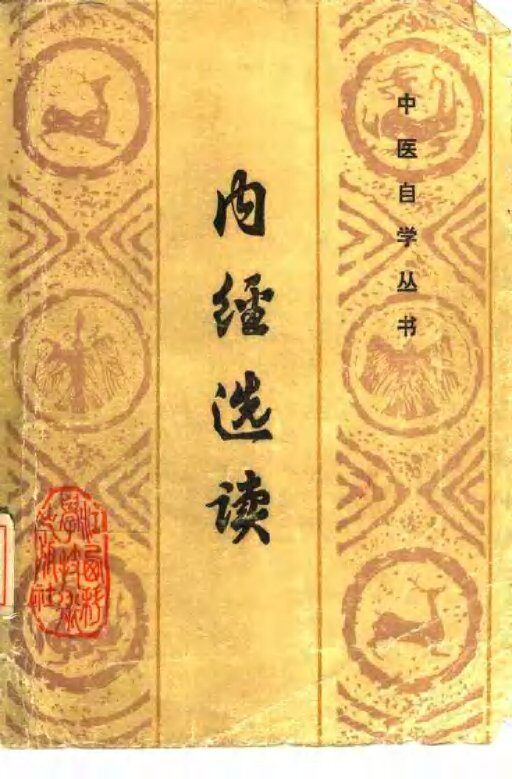 中医自学丛书
内经选读